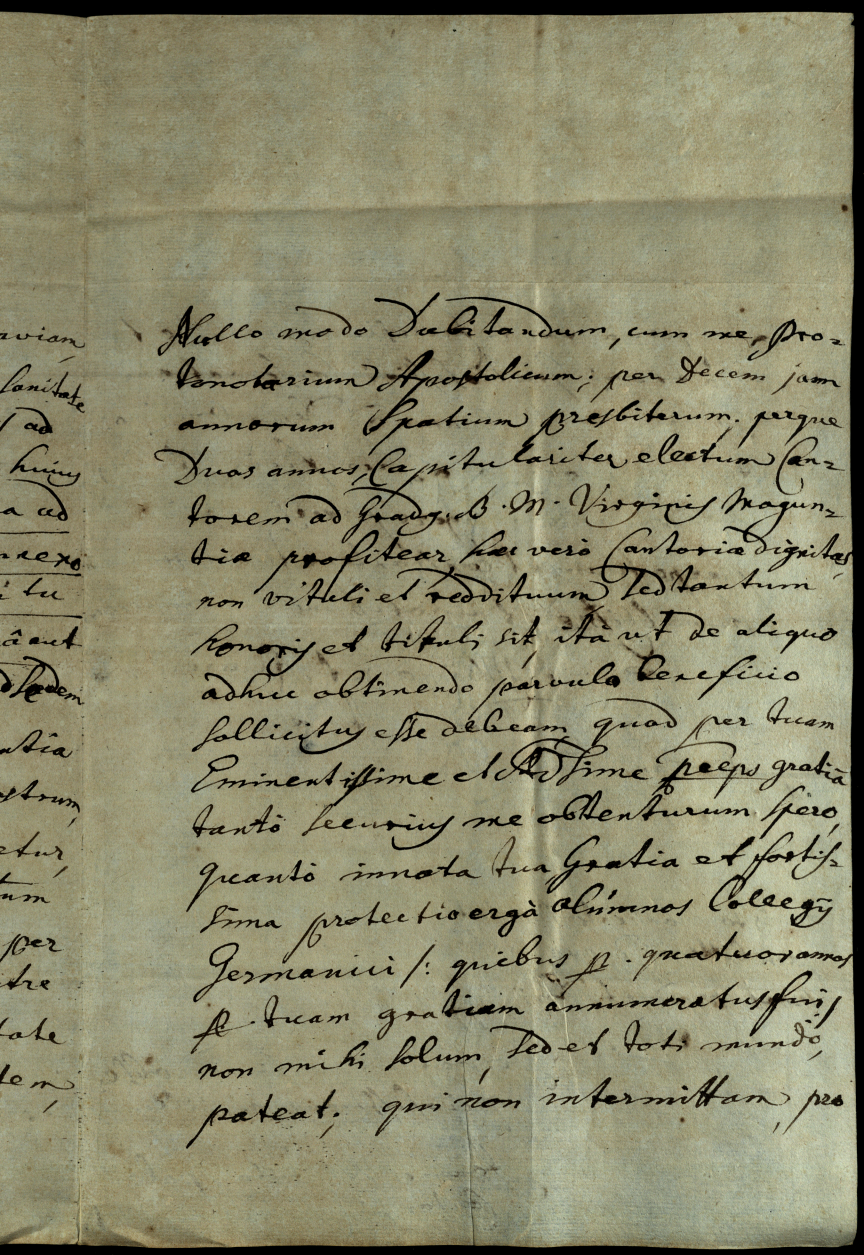 aviam,
sanitate
ad
huius
a ad
nnexo
i tu
â aut
dsadem
ntia
ostrum,
etur,
tum
per
tre
tate
tem,
Nullo modo Dubitandum, cum me, Pro=
tonotarium Apostolicum; per Decem jam
annorum Spatium presbiterum; perque
Duos annos; Capitulariter electum Can=
torem ad Grady B. M. Virginis Mogun=
tiæ profitear, hæc verò Cantoriæ dignitas,
non vituli et reddituum sed tantum
honoris et tituli sit, ità ut de aliquo
adhuc obtinendo parvulo beneficio
sollicitus esse debeam, quod per tuam
Eminentissime et sime pceps gratiâ
tantò securius me obtenturum spero,
quantò innata tua Gratia et fortis=
sima protectio ergà alúmnos Collegÿ
Germanici /: quibus p. quatuor annos
p. tuam gratiam annumeratus fui/
non mihi solum, sed et toti mundo,
pateat; qui non intermittam, pro